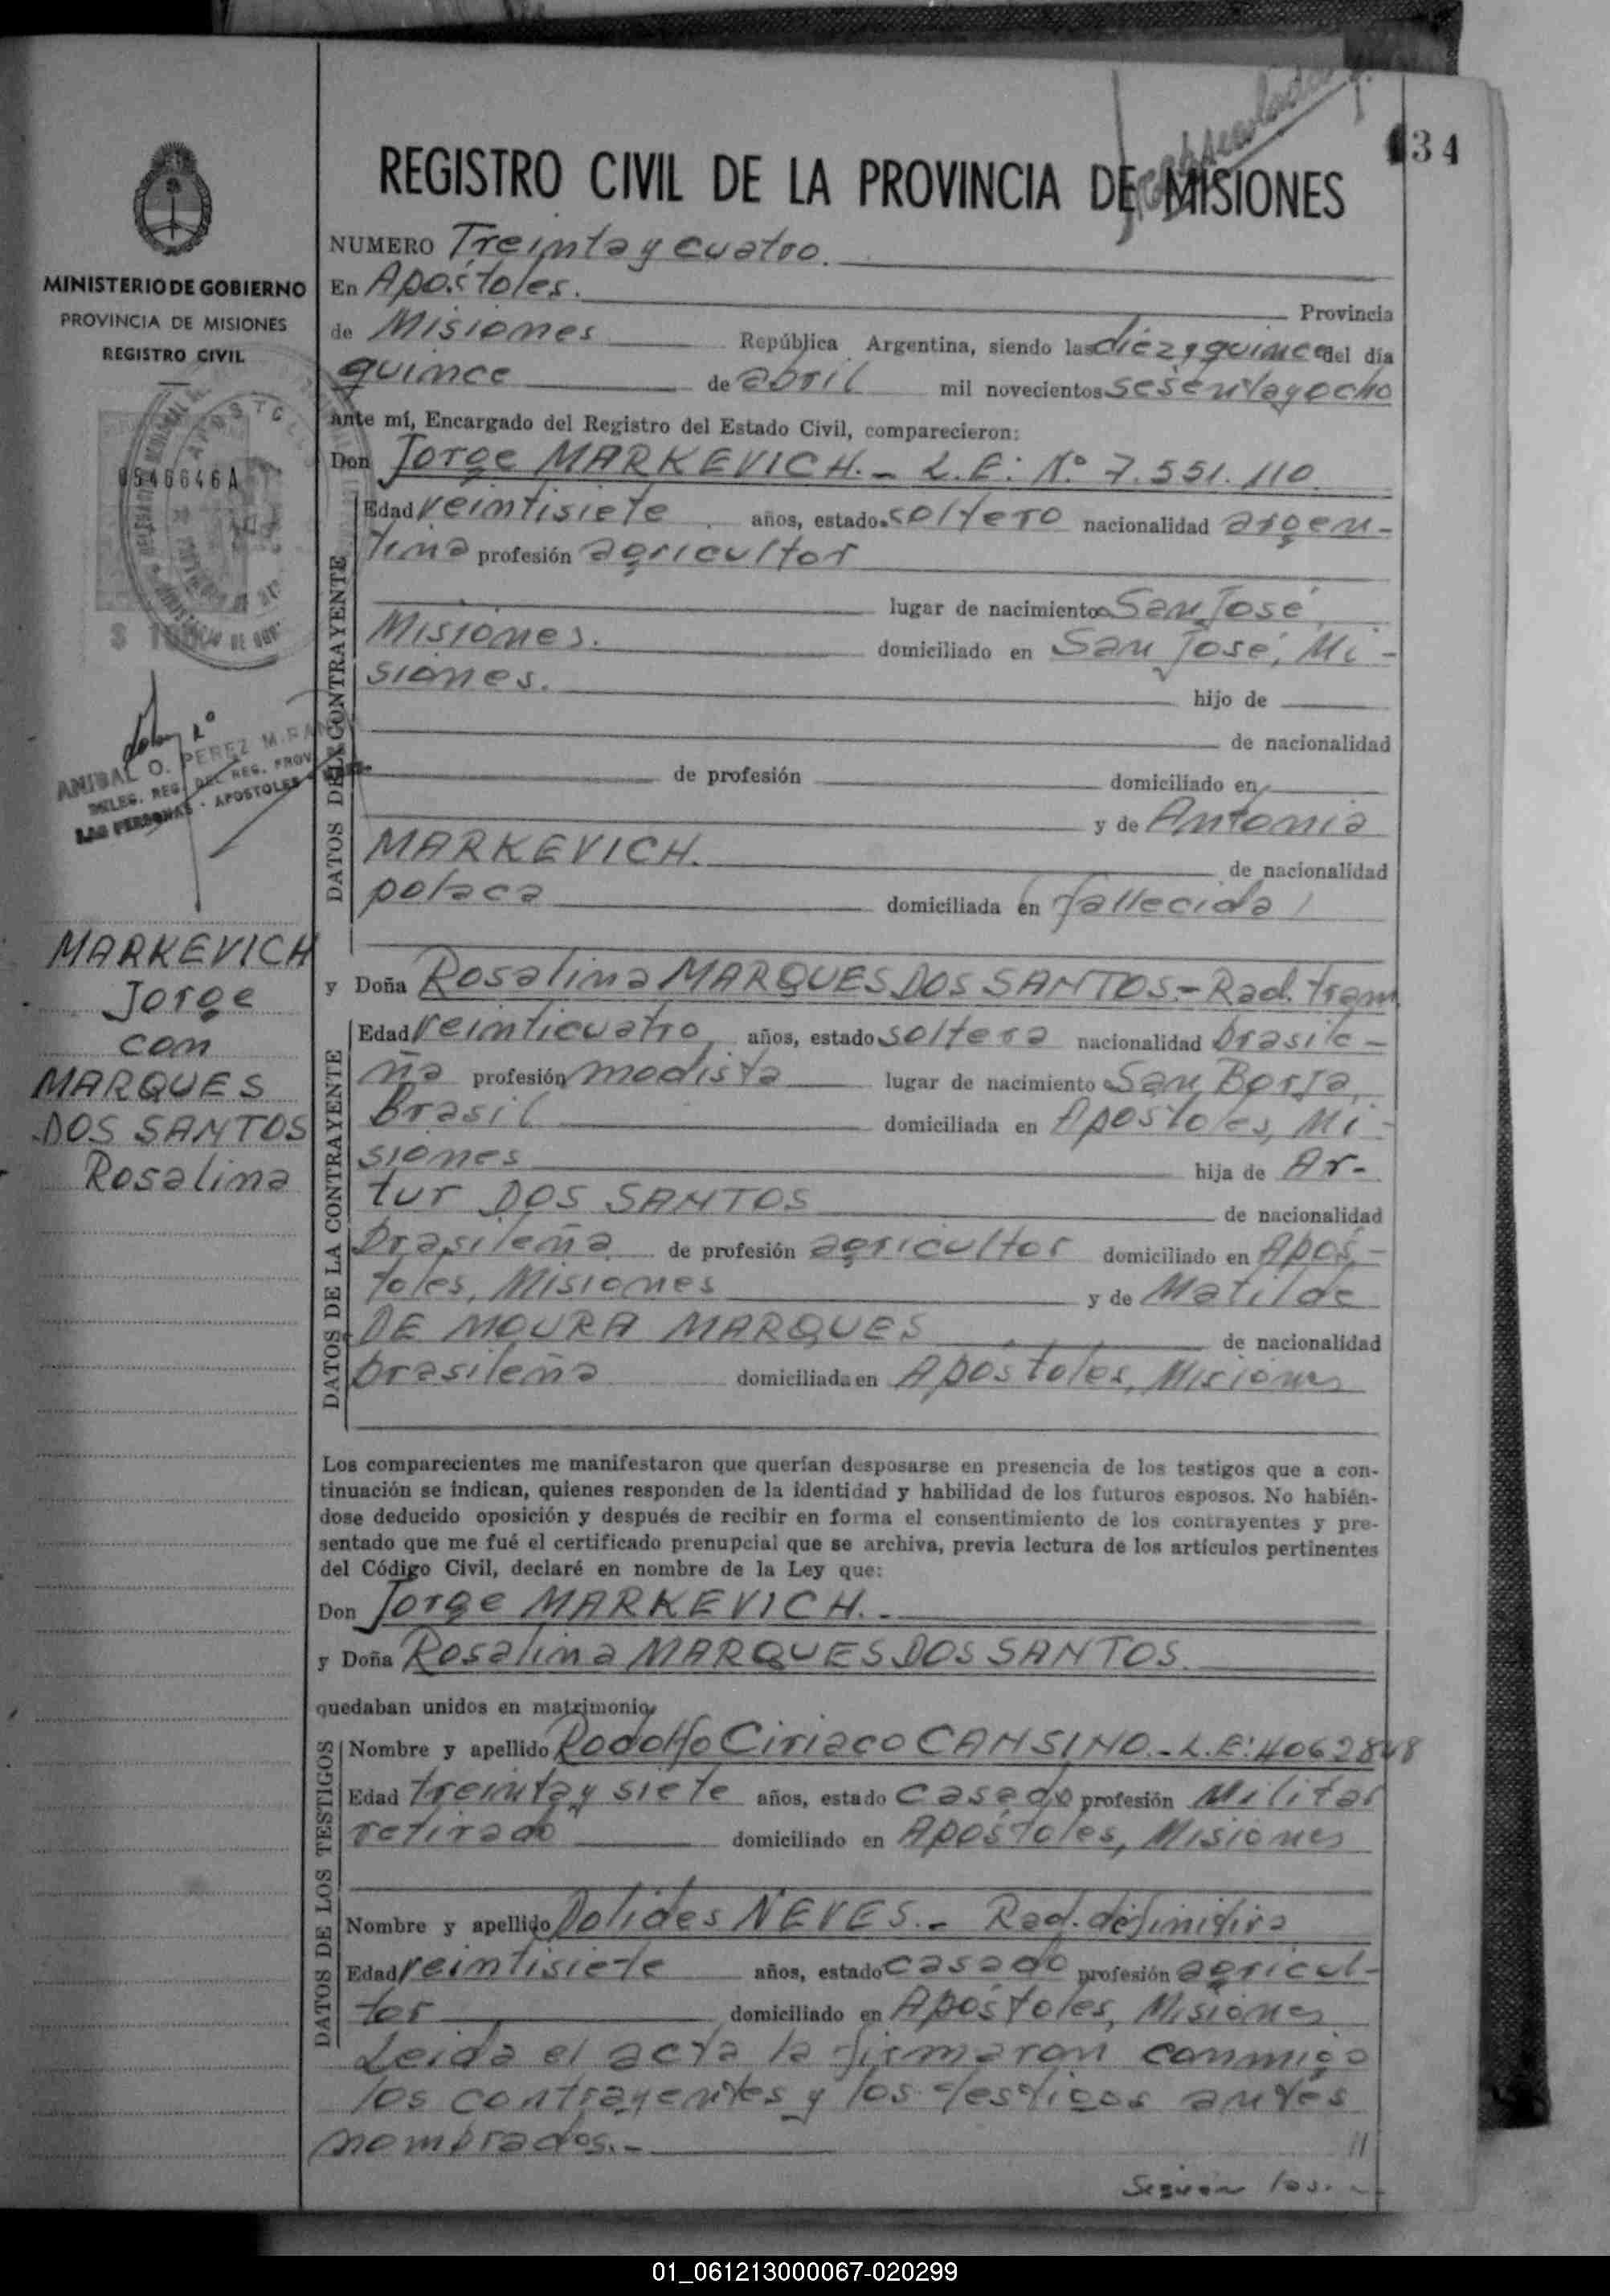 34
REGISTRO CIVIL DE LA PROVINCIA DE MISIONES
MINISTERIO DE GOBIERNO
PROVINCIA DE MISIONES
REGISTRO CIVIL
0546646A
ANIBAL O. PEREZ
DELEG. REG. DEL REG. PROV
LAS PERSONAS - APOSTOLES
MARKEVICH
Jorge
con
MARQUES
DOS SANTOS
Rosalina
NUMERO Treinta y cuatro.
En Apóstoles. Provincia
de Misiones República Argentina, siendo las diez y quince del día
quince de abril mil novecientos sesenta y ocho
ante mí, Encargado del Registro del Estado Civil, comparecieron:
Don Jorge MARKEVICH.- L.E: Nº 7.551.110.
DATOS DEL CONTRAYENTE
Edad veintisiete años, estado soltero nacionalidad argen-
tina profesión agricultor
lugar de nacimiento San José,
Misiones. domiciliado en San José, Mi-
siones. hijo de
de nacionalidad
de profesión domiciliado en
y de Antonia
MARKEVICH. de nacionalidad
polaca domiciliada en fallecida
y Doña Rosalina MARQUES DOS SANTOS.- Rad. tram
DATOS DE LA CONTRAYENTE
Edad veinticuatro años, estado soltera nacionalidad brasile-
ña profesión modista lugar de nacimiento San Borja,
Brasil domiciliada en Apóstoles, Mi-
siones hija de Ar-
tur DOS SANTOS de nacionalidad
brasileña de profesión agricultor domiciliado en Após-
toles, Misiones y de Matilde
DE MOURA MARQUES de nacionalidad
brasileña domiciliada en Apóstoles, Misiones
Los comparecientes me manifestaron que querían desposarse en presencia de los testigos que a con-
tinuación se indican, quienes responden de la identidad y habilidad de los futuros esposos. No habién-
dose deducido oposición y después de recibir en forma el consentimiento de los contrayentes y pre-
sentado que me fué el certificado prenupcial que se archiva, previa lectura de los artículos pertinentes
del Código Civil, declaré en nombre de la Ley que:
Don Jorge MARKEVICH.-
y Doña Rosalina MARQUES DOS SANTOS.
quedaban unidos en matrimonio,
DATOS DE LOS TESTIGOS
Nombre y apellido Rodolfo Ciriaco CANSINO.- L.E: 4062848
Edad treinta y siete años, estado casado profesión Militar
retirado domiciliado en Apóstoles, Misiones
Nombre y apellido Dolides NEVES.- Rad. definitiva
Edad veintisiete años, estado casado profesión agricul-
tor domiciliado en Apóstoles, Misiones
Leída el acta la firmaron conmigo
los contrayentes y los testigos antes
nombrados.- //
01_061213000067-020299